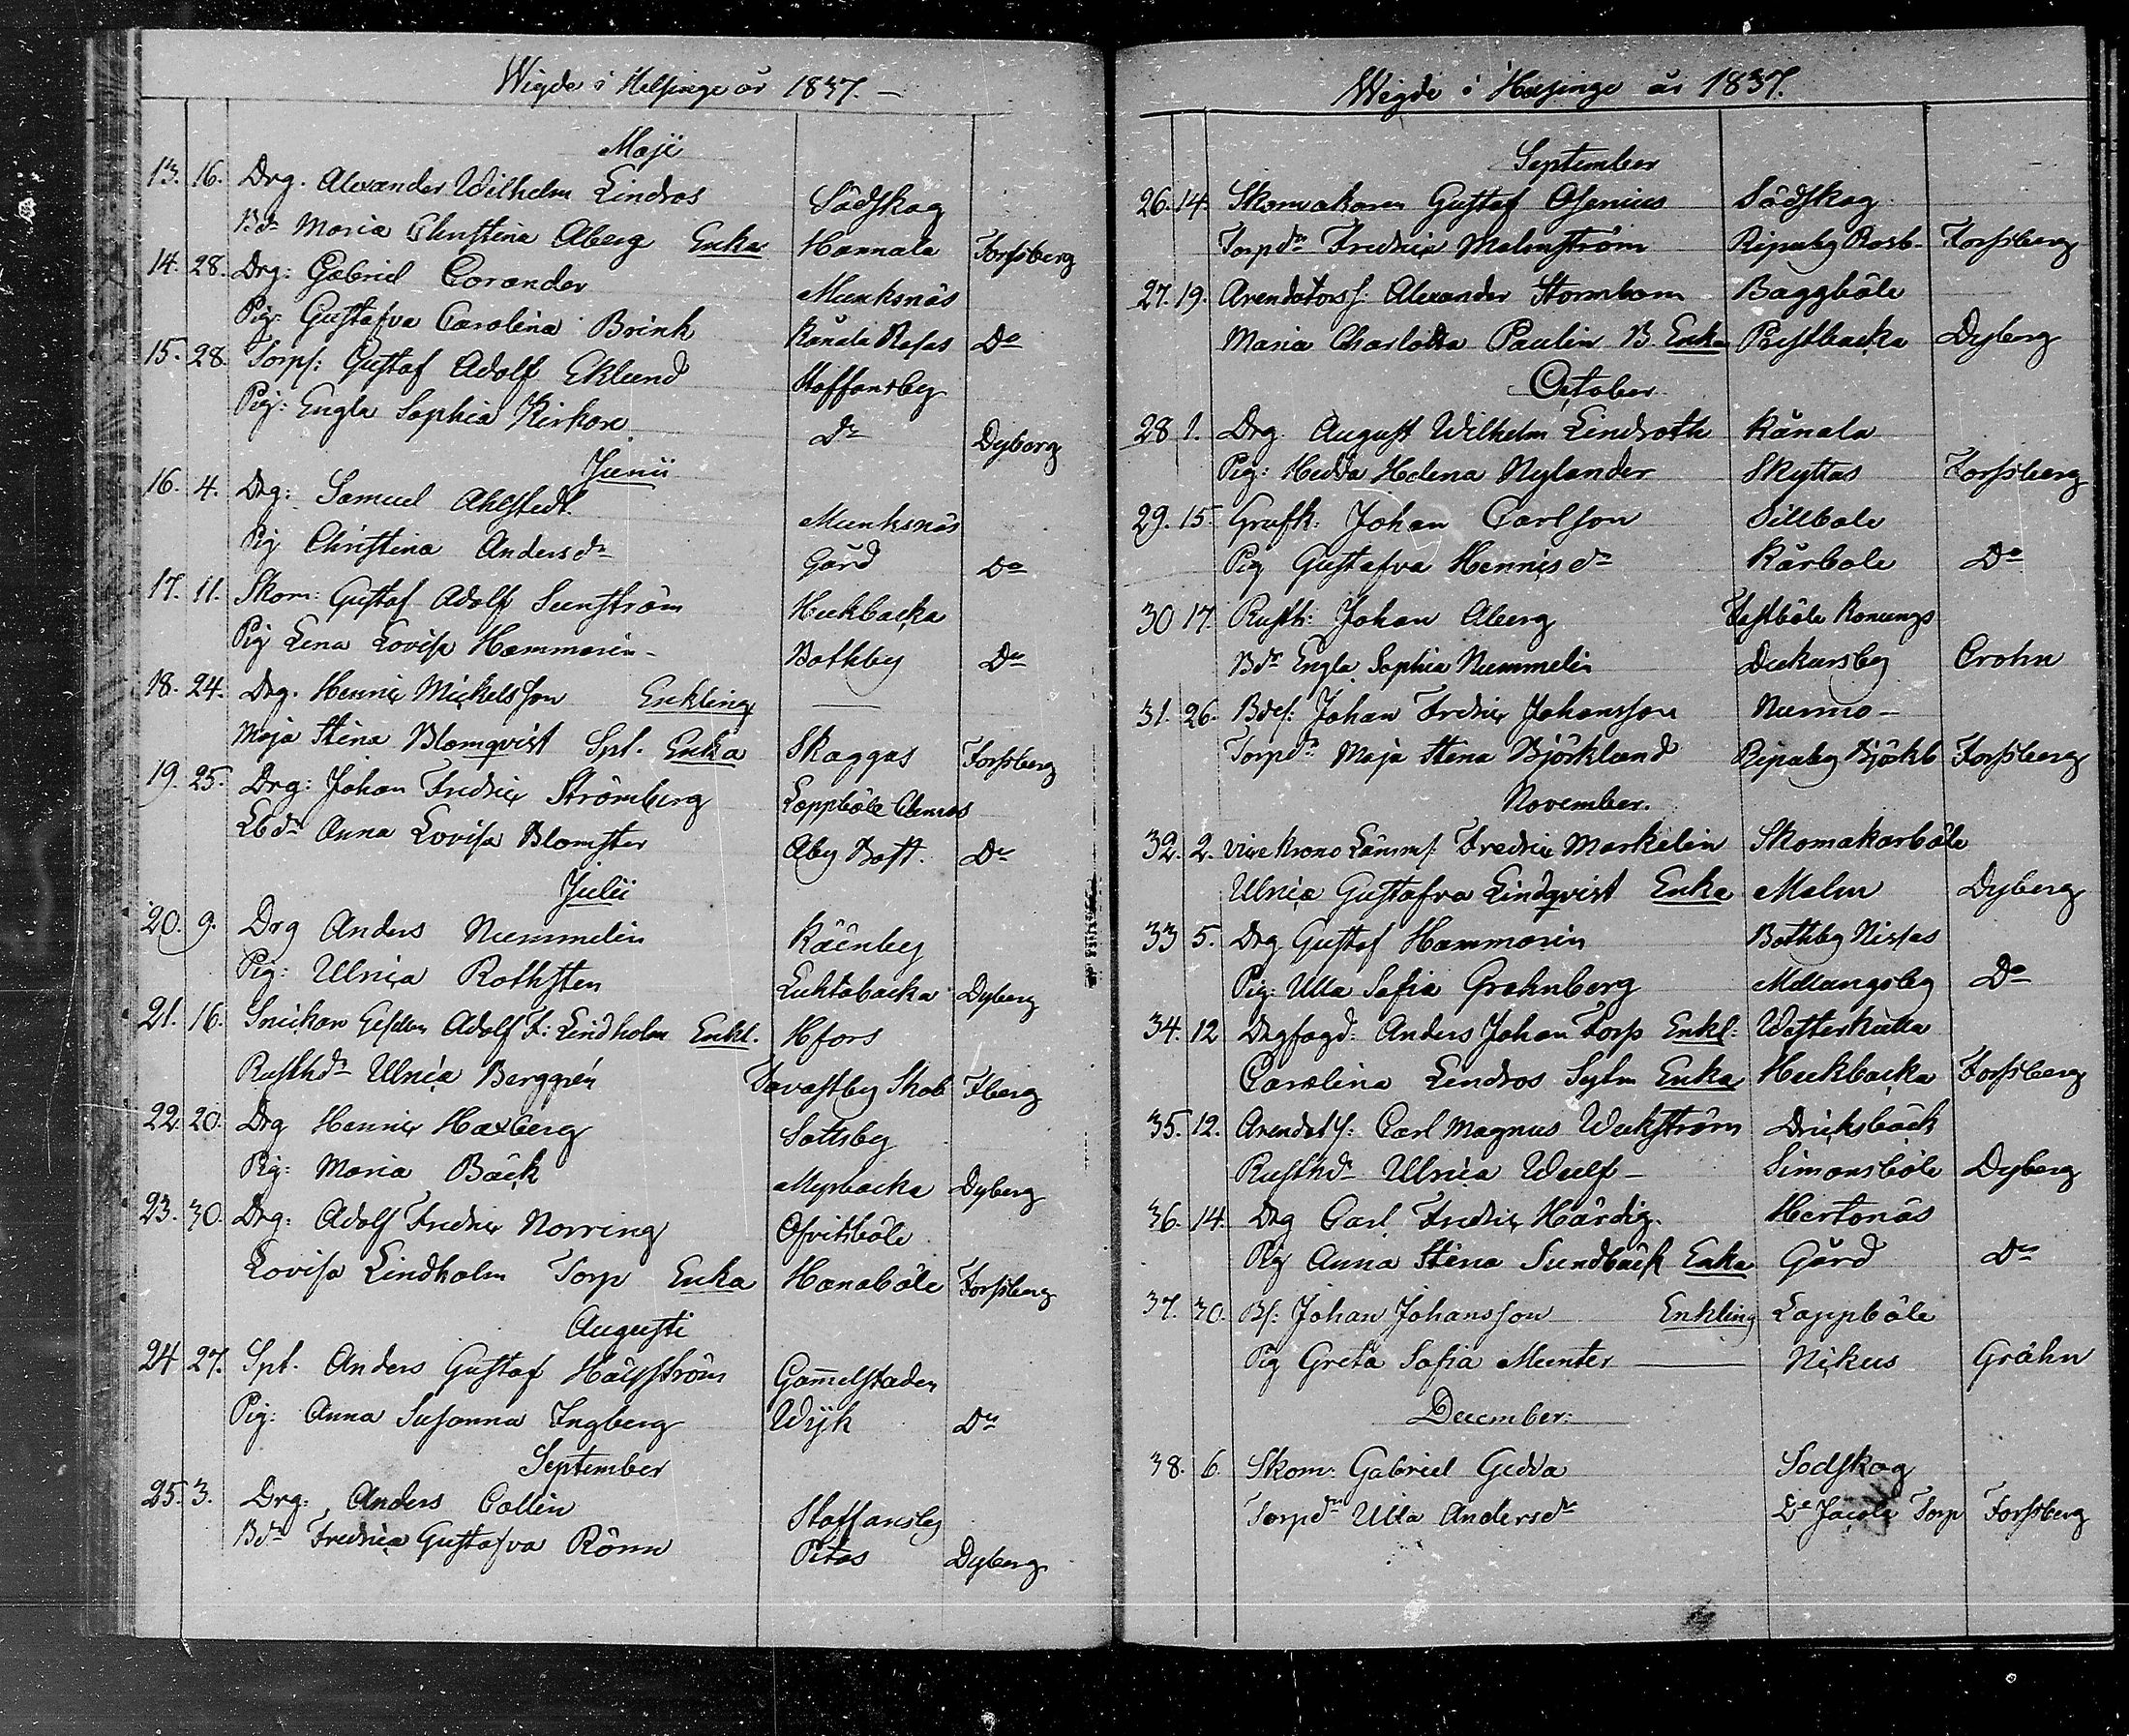 Wigde i Helsinge år 1837. –
Maji
13. 16. Drg. Alexander Wilhelm Lindros Sådskog
Bdr Maria Christina Åberg Enka Hannala Forssberg
14. 28. Drg: Gabriel Corander Munksnäs
Pig: Gustafva Carolina Brink Kånala Rasas Do
15. 28. Torps: Gustaf Adolf Eklund Staffansby
Pig: Engla Sophia Kirkon Do Dyberg
Junii
16. 4. Drg: Samuel Ahlstedt Munksnäs
Pig Christina Andersdr Gård Do
17. 11. Skom: Gustaf Adolf Sunström Huckbacka
Pig Lena Lovisa Hammarin – Bothby Do
18. 24. Drg. Henric Mickelsson Enkling
Maja Stina Blomqvist Spt. Enka Skaggas Forssberg
19. 25. Drg: Johan Fredric Strömberg Lappböle
Lbdr Anna Lovisa Blomster Åby Do
Julii
20. 9. Drg Anders Nummelin Kåinby
Pig: Ulrica Rothsten Luktabacka Dyberg
21. 16. Snickare Gesällen Adolf F: Lindholm Enkl. Hfors
Rusthdr Ulrica Berggren Tavastby Skob Fberg
22. 20. Drg Henric Haxberg Sottsby
Pig: Maria Bäck Myrbacka Dyberg
23. 30. Drg: Adolf Fredric Norring Ofvitsböle
Lovisa Lindholm Torp Enka Hanaböle Forssberg
Augusti
24 27. Spt. Anders Gustaf Hälsström Gammelstaden
Pig: Anna Susanna Ingberg Wijk Do
September
25. 3. Drg: Anders Collin Staffansby
Bdr Fredrica Gustafva Rönn Pitas Dyberg
Wigde i Helsinge år 1837.
September
26. 14. Skomakaren Gustaf Asenius Sådskog
Torpdr Fredrica Malmström Ripuby Rosb. Forssberg
27. 19. Arendators s: Alexander Stormbom Baggböle
Maria Charlotta Paulin B. Enka Prestbacka Dyberg
October
28 1. Drg. August Wilhelm Lindroth Kånala
Pig: Hedda Helena Nylander Skyttas Forssberg
29. 15 Grufk: Johan Carlsson Sillbole
Pig Gustafva Hennisdr Kårbole Do
30 17. Rusth: Johan Åberg Festböle Konungs
Bdr Engla Sophia Nummelin Dickursby Crohn
31. 26. Bdes: Johan Fredric Johansson Nurmo –
Torpdr Maja Stena Björklund Ripuby Björkb Forssberg
November.
32. 2. Vice Krono Länsm: Fredric Markelin Skomakarböle
Ulrica Gustafva Lindqvist Enka Malm Dyberg
33 5. Drg Gustaf Hammarin Bothby Nissas
Pig: Ulla Sofia Grahnberg Mellungsby Do
34. 12 Drgfogd: Anders Johan Torp Enkl: Westerkulla
Carolina Lindros Sytm Enka Huckbacka Forssberg
35. 12. Arendat s: Carl Magnus Weckström Dricksbäck
Rusthdr Ulrica Wulf – Simonsböle Dyberg
36. 14. Drg Carl Fredric Härdig. Hertonäs
Pig Anna Stina Sundbäck Enka Gård Do
37. 30. Bs: Johan Johansson Enkling Lappböle
Pig Greta Sofia Munter Nikus Gråhn
December:
38. 6. Skom: Gabriel Gedda Sodskog
Torpdr Ulla Andersdr Do Jacobs Torp Forssberg